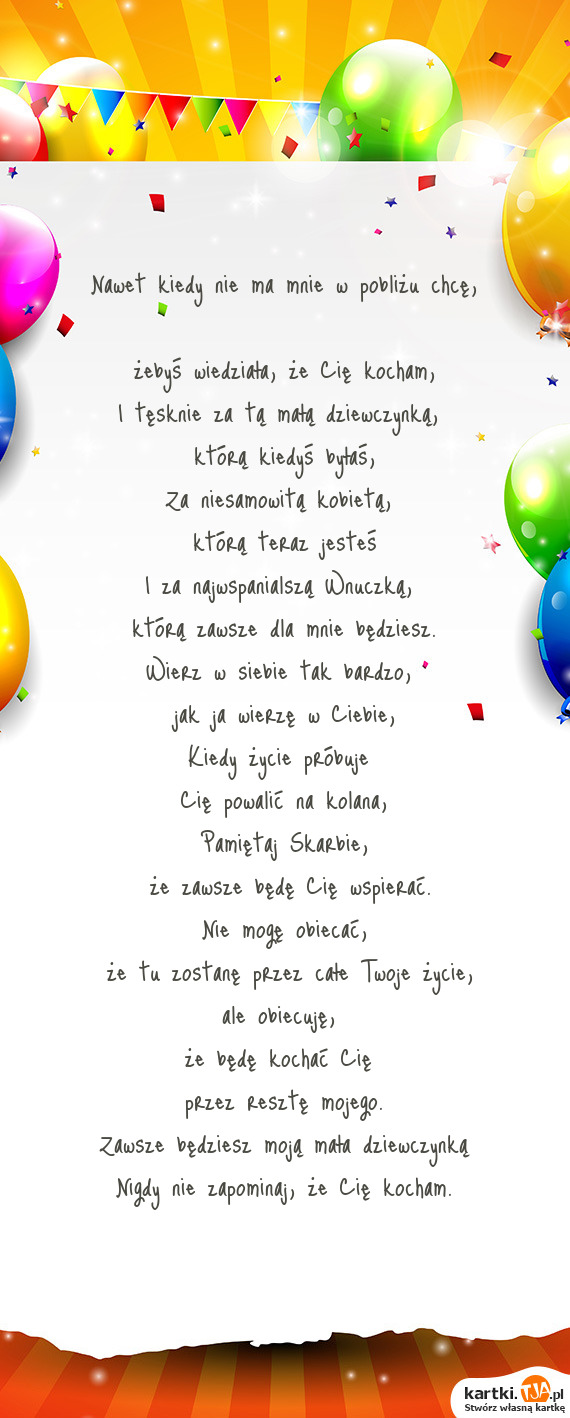 Nawet kiedy nie ma mnie w pobliżu chcę,
żebyś wiedziała, że Cię kocham,
I tęsknie za tą małą dziewczynką,
którą kiedyś byłaś,
Za niesamowitą kobietą,
którą teraz jesteś
I za najwspanialszą Wnuczką,
którą zawsze dla mnie będziesz.
Wierz w siebie tak bardzo,
jak ja wierzę w Ciebie,
Kiedy życie próbuje
Cię powalić na kolana,
Pamiętaj Skarbie,
że zawsze będę Cię wspierać.
Nie mogę obiecać,
że tu zostanę przez całe Twoje życie,
ale obiecuję,
że będę kochać Cię
przez resztę mojego.
Zawsze będziesz moją mała dziewczynką
Nigdy nie zapominaj, że Cię kocham.
kartki.TJA.pl
Stwórz własną kartkę